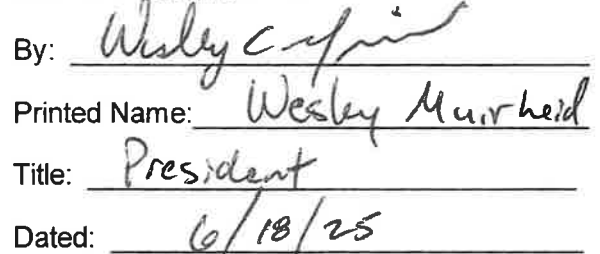 By: Wesley C
Printed Name: Wesley Muirheid
Title: President
Dated: 6/18/25